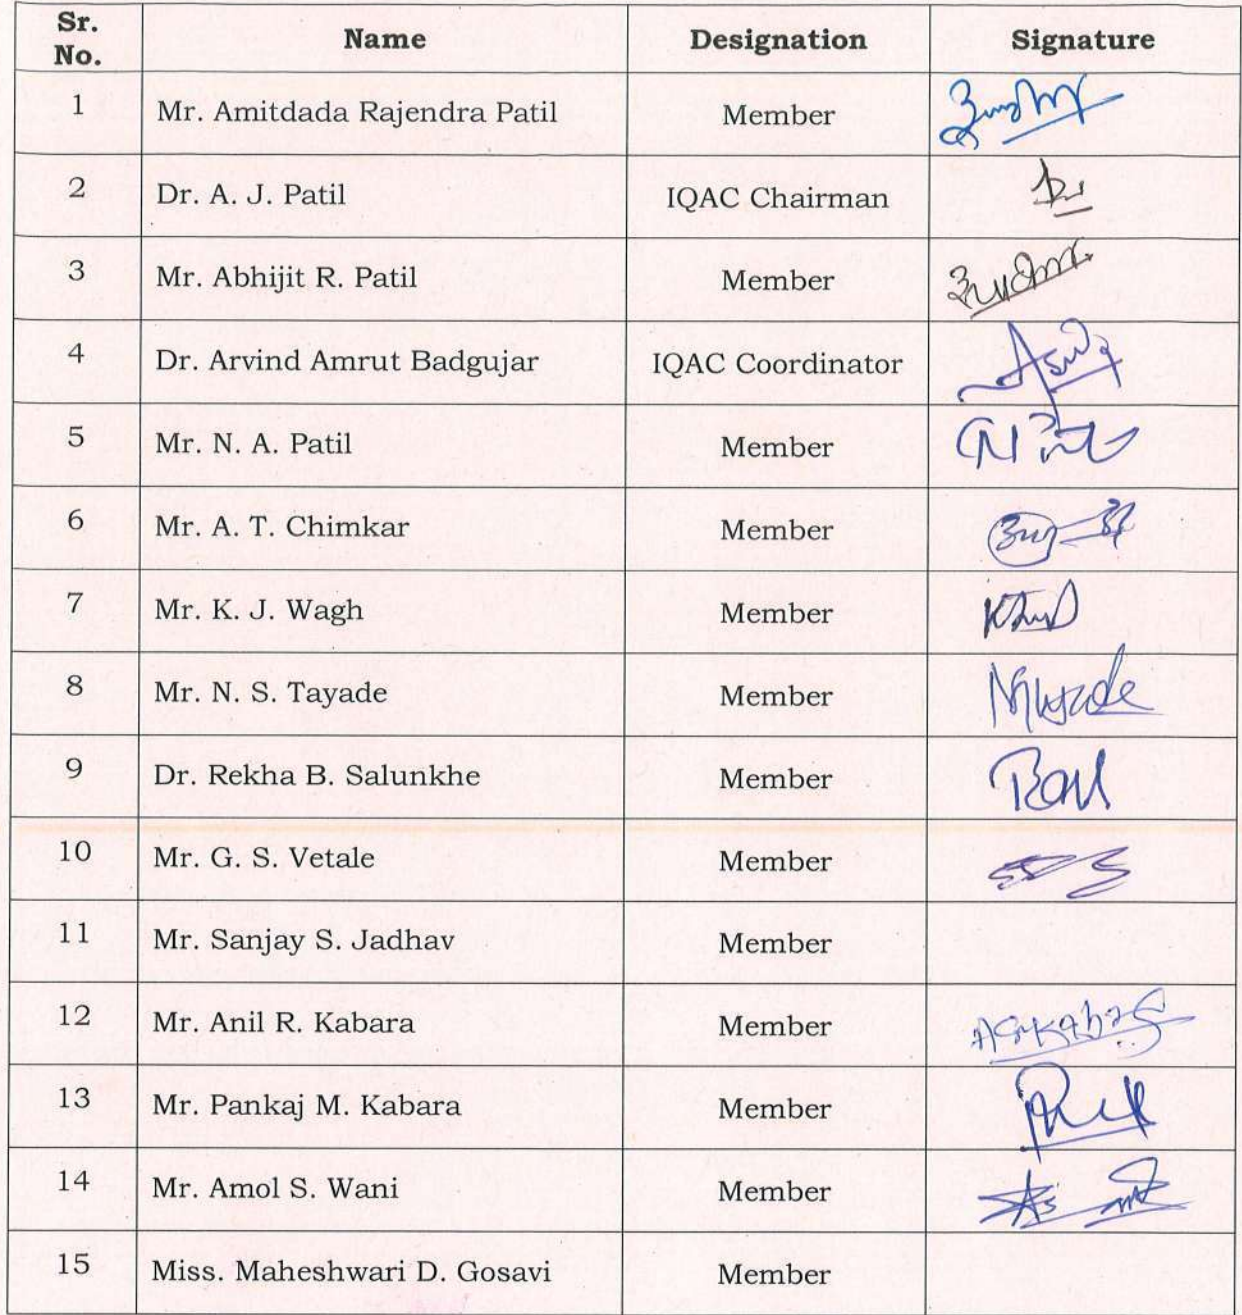 Sr. No. Name Designation Signature
1 Mr. Amitdada Rajendra Patil Member
2 Dr. A. J. Patil IQAC Chairman
3 Mr. Abhijit R. Patil Member
4 Dr. Arvind Amrut Badgujar IQAC Coordinator
5 Mr. N. A. Patil Member
6 Mr. A. T. Chimkar Member
7 Mr. K. J. Wagh Member
8 Mr. N. S. Tayade Member
9 Dr. Rekha B. Salunkhe Member
10 Mr. G. S. Vetale Member
11 Mr. Sanjay S. Jadhav Member
12 Mr. Anil R. Kabara Member
13 Mr. Pankaj M. Kabara Member
14 Mr. Amol S. Wani Member
15 Miss. Maheshwari D. Gosavi Member